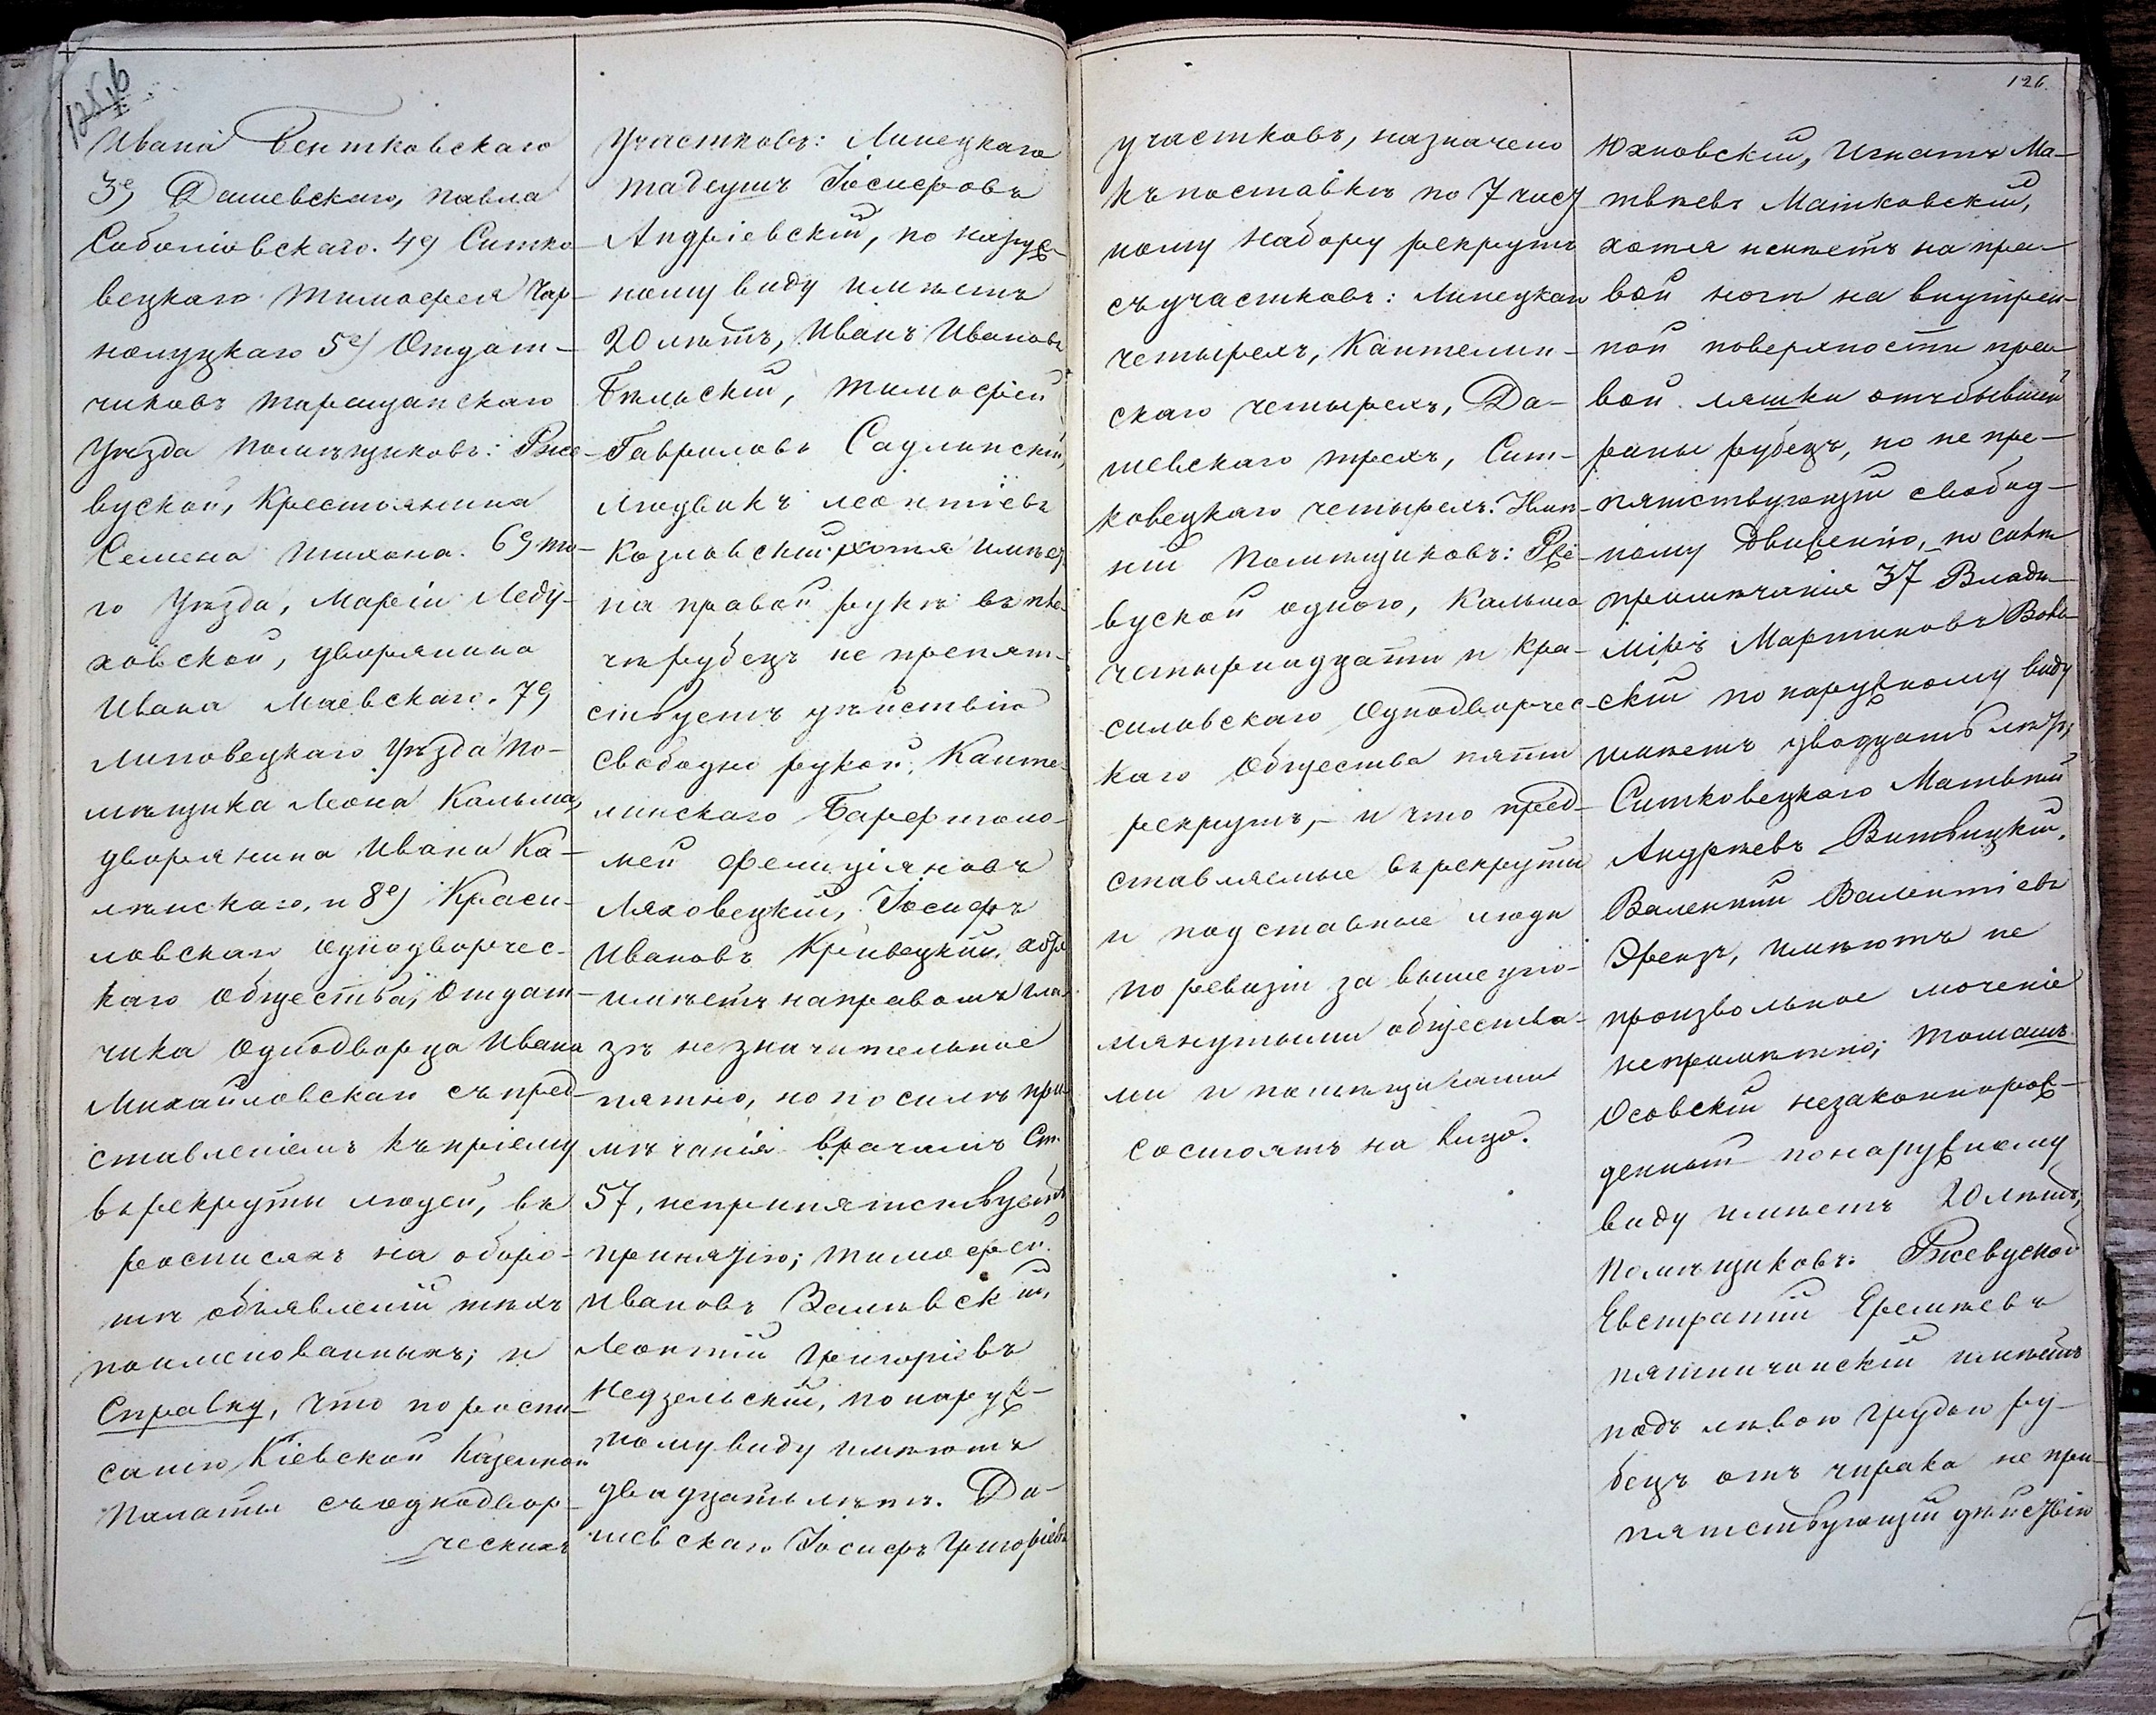 125 б
Ивана Бентковскаго
3е) Дашевскаго, Павла
Соболіовскаго. 4е) Ситко-
вецкаго Тимофея Чар-
нолуцкаго 5е) Отдат-
чиковъ Таращанскаго
Уѣзда Помѣщиковъ: Рже-
вуской, Крестьянина
Семена Тихона. 6е) то-
го Уѣзда, Маріи Леду-
ховской, дворянина
Ивана Маевскаго. 7е
Липовецкаго Уѣзда По-
мѣщика Леона Кальма,
дворянина Ивана Ка-
лѣнскаго, и 8е) Краси-
ловскаго Однодворчес-
каго Общества, Отдат-
чика Однодворца Ивана
Михайловскаго съ пред-
ставленіемъ къ пріему
въ рекруты людей, въ
росписяхъ на оборо-
тѣ объявленій тѣхъ
поименованныхъ; и
Справку, что по роспи-
санію Кіевской Казенной
Палаты съ однодвор-
ческихъ
Участковъ: Липецкаго
Тадеушъ Іосифовъ
Андріевскій, по наруж-
ному виду имѣетъ
20 лѣтъ, Иванъ Ивановъ
Бѣльскій, Тимофей
Гавриловъ Садлинскій,
Людвикъ Леонтіевъ
Козловскій хотя имѣе
на правой рукѣ въ пле-
чѣ рубецъ не препят-
ствуетъ дѣйствію
свободно рукой, Канте-
линскаго Барфтоло-
мей Фелиціяновъ
Ляховецкій, Іосифъ
Ивановъ Кривецкій, хотя
имѣетъ на правомъ гла-
зѣ незначительное
пятно, но по силѣ при
мѣчанія врачамъ Ст.
57, непрепятствуетъ
принятію; Тимофей
Ивановъ Залѣвскій,
Леонтій Григоріевъ
Недзельскій, по наруж-
ному виду имѣютъ
двадцать лѣтъ. Да-
шевскаго Іосифъ Григоріевъ
126.
участковъ, назначено
къ поставкѣ по 7 част
ному набору рекрутъ
съ участковъ: Липецкаго
четырехъ, Кантелин-
скаго четырехъ, Да-
шевскаго трехъ, Сит-
ковецкаго четырехъ. Имѣ-
ній Помѣщиковъ: Рже-
вуской одного, Кальма
четырнадцати и Кра-
силовскаго Однодворчес-
каго Общества пяти
рекрутъ, и что пред-
ставляемые въ рекруты
и подставные люди
по ревизіи за вышеупо-
мянутыми общества-
ми и помѣщиками
состоятъ на лицо.
Юхновскій, Игнатъ Ма-
твѣевъ Матковскій,
хотя имѣетъ на пра-
вой ногѣ на внутрен-
ной поверхности пра-
вой ляшки отъ бывшей
раны рубецъ, но не пре-
пятствующій свобод-
ному движенію, по силѣ
примѣчанія 37 Влади-
міръ Мартиновъ
скій по наружному виду
имѣетъ двадцать лѣтъ,
Ситковецкаго Матвѣй
Андреевъ Витвицкій,
Валентій Валентіевъ
Френцъ, имѣютъ не
произвольное моченіе
непримѣтно; Томашъ
Осовскій незаконнорож-
денный по наружному
виду имѣетъ 20 лѣтъ,
Помѣщиковъ: Ржевуской
Евстратій Еремѣевъ
Пятничанскій имѣетъ
подъ лѣвою грудью ру-
бецъ отъ чирака не пре-
пятствующій дѣйствію